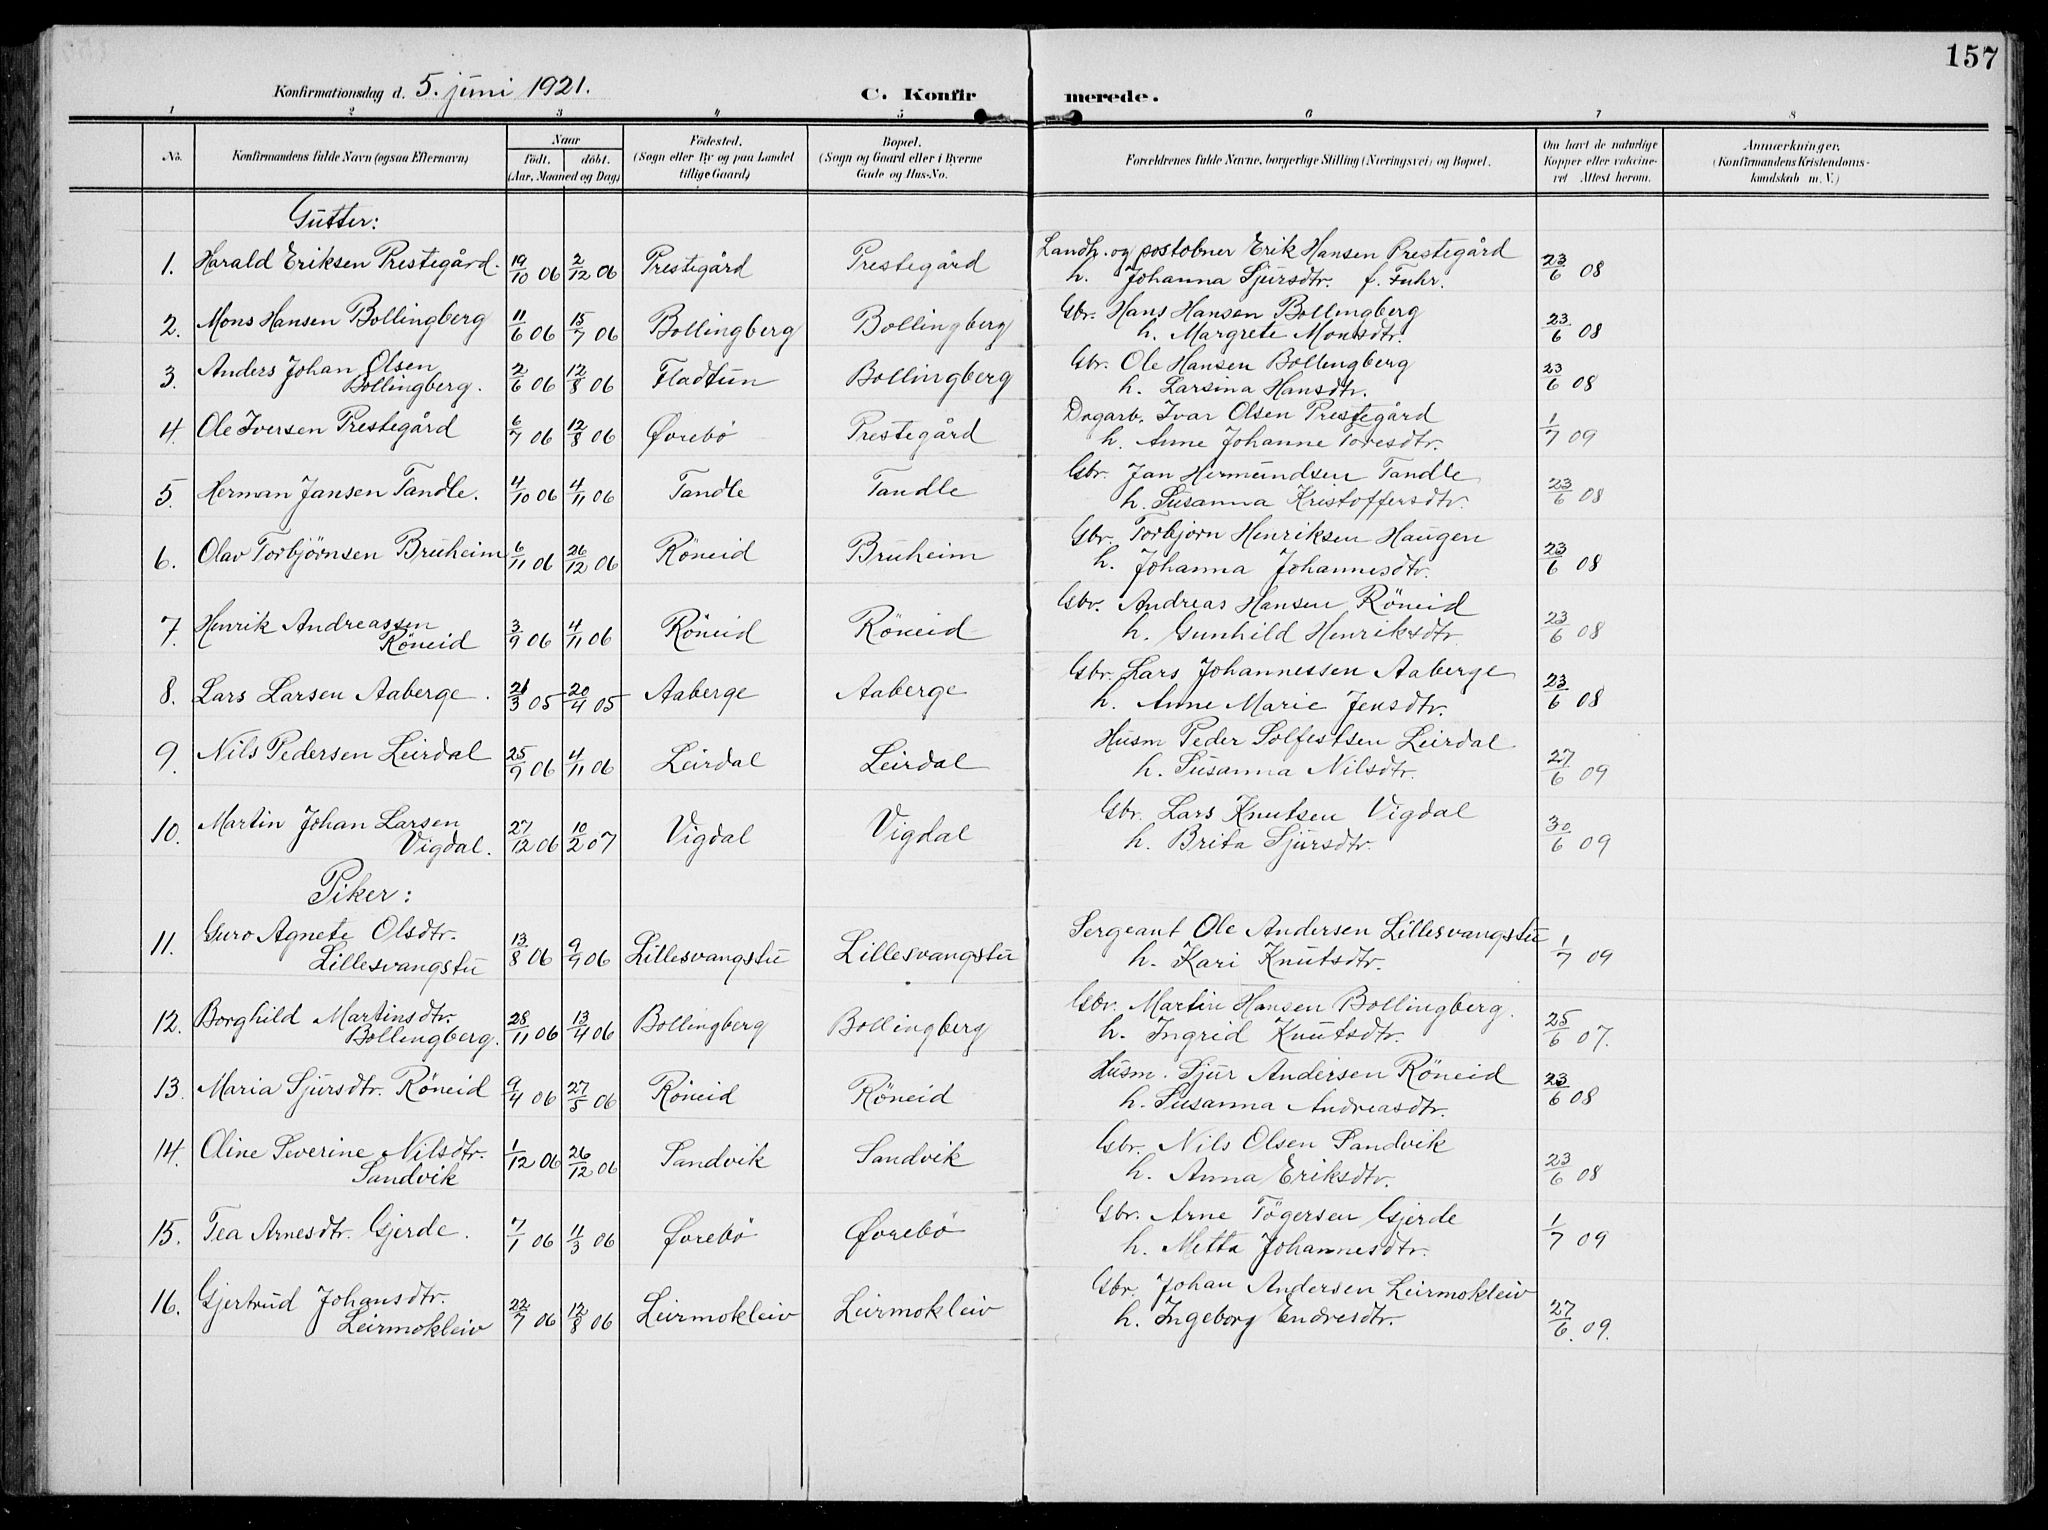 157
Konfirmationsdag d. 5. juni 1921. C. Konfir merede.
1 2 3 4 5 6 7 8
No. Konfirmandens fulde Navn (ogsaa Efternavn) Naar født. døbt. (Aar, Maaned og Dag) Fødested. (Sogn eller By og paa Landet tillige Gaard) Bopæl. (Sogn og Gaard eller i Byerne Gade og Hus-No. Forældrenes fulde Navne, borgerlige Stilling (Næringsvei) og Bopæl. Om havt de naturlige Kopper eller vaccineret Attest herom. Anmærkninger. (Konfirmandens Kristendomskundskab m. V.)
Gutter:
1. Harald Eriksen Prestegård. 19/10 06 2/12 06 Prestegård Prestegård Landh. og postobner Erik Hansen Prestegård
h. Johanna Sjursdtr. f. Fuhr. 23/6 08
2. Mons Hansen Bollingberg 11/6 06 15/7 06 Bollingberg Bollingberg Gbr. Hans Hansen Bollingberg
h. Margrete Monsdtr. 23/6 08
3. Anders Johan Olsen
Bollingberg. 2/6 06 12/8 06 Fladtun Bollingberg Gbr. Ole Hansen Bollingberg
h. Larsina Hansdtr. 23/6 08
4. Ole Iversen Prestegård 6/7 06 12/8 06 Øvrebö Prestegård Dagarb. Ivar Olsen Prestegård
h. Anne Johanne Toresdtr. 1/7 09
5. Herman Jansen Tandle. 4/10 06 4/11 06 Tandle Tandle Gbr. Jan Hermundsen Tandle
h. Susanna Kristoffersdtr. 23/6 08
6. Olav Torbjørnsen Bruheim 6/11 06 26/12 06 Röneid Bruheim Gbr. Torbjørn Henriksen Haugen
h. Johanna Johannesdtr. 23/6 08
7. Henrik Andreassen
Röneid 3/9 06 4/11 06 Röneid Röneid Gbr. Andreas Hansen Röneid
h. Gunhild Henriksdtr 23/6 08
8. Lars Larsen Aaberge. 21/3 05 20/4 05 Aaberge Aaberge Gbr. Lars Johannessen Aaberge
h. Anne Marie Jensdtr. 23/6 08
9. Nils Pedersen Leirdal 25/9 06 4/11 06 Leirdal Leirdal Husm Peder Solfestsen Leirdal
h. Susanna Nilsdtr. 27/6 09
10. Martin Johan Larsen
Vigdal. 27/12 06 10/2 07 Vigdal Vigdal Gbr. Lars Knutsen Vigdal
h. Brita Sjursdtr. 30/6 09
Piker:
11. Guro Agnete Olsdtr.
Lillesvangstu 13/8 06 9/9 06 Lillesvangstu Lillesvangstu Sergeant Ole Andersen Lillesvangstu
h. Kari Knutsdtr. 1/7 09
12. Borghild Martinsdtr.
Bollingberg. 28/11 06 13/4 06 Bollingberg Bollingberg Gbr. Martin Hansen Bollingberg.
h. Ingrid Knutsdtr. 25/6 07.
13. Maria Sjursdtr. Röneid 9/4 06 27/5 06 Röneid Röneid Husm. Sjur Andersen Röneid
h. Susanna Andreasdtr. 23/6 08
14. Oline Severine Nilsdtr.
Sandvik 1/12 06 26/12 06 Sandvik Sandvik Gbr. Nils Olsen Sandvik
h. Anna Eriksdtr. 23/6 08
15. Tea Arnesdtr. Gjerde. 7/1 06 4/3 06 Øvrebö Øvrebö Gbr. Arne Tögersen Gjerde
h. Metta Johannesdtr. 1/7 09
16. Gjertrud Johansdtr.
Leirmokleiv 22/7 06 12/8 06 Leirmokleiv Leirmokleiv Gbr. Johan Andersen Leirmokleiv
h. Ingeborg Endresdtr. 27/6. 09.